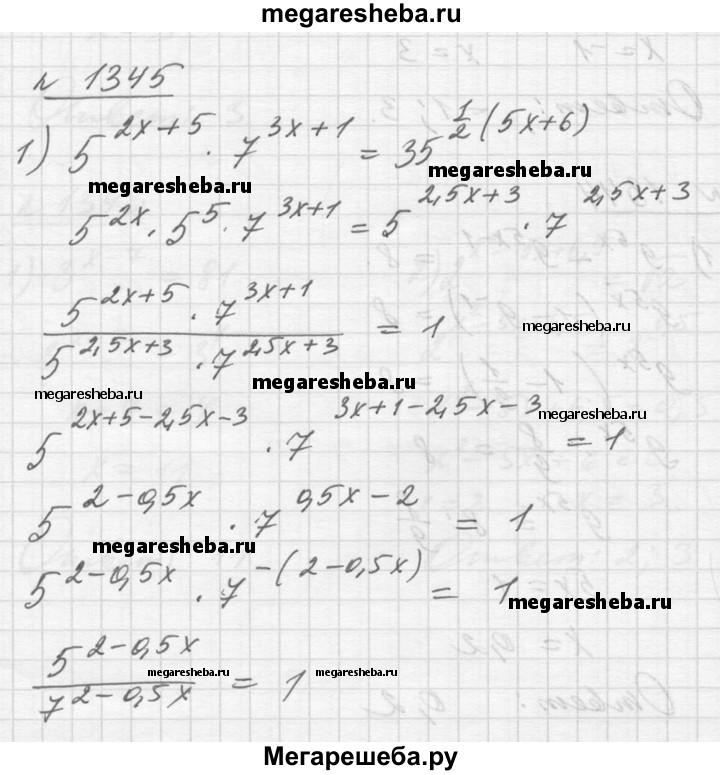 megaresheba.ru
№ 1345
1) 5^{2x+5} · 7^{3x+1} = 35^{\frac{1}{2}(5x+6)}
megaresheba.ru
megaresheba.ru
5^{2x} · 5^5 · 7^{3x+1} = 5^{2,5x+3} · 7^{2,5x+3}
\frac{5^{2x+5} · 7^{3x+1}}{5^{2,5x+3} · 7^{2,5x+3}} = 1
megaresheba.ru
megaresheba.ru
megaresheba.ru
5^{2x+5-2,5x-3} · 7^{3x+1-2,5x-3} = 1
megaresheba.ru
5^{2-0,5x} · 7^{0,5x-2} = 1
megaresheba.ru
5^{2-0,5x} · 7^{-(2-0,5x)} = 1
megaresheba.ru
\frac{5^{2-0,5x}}{7^{2-0,5x}} = 1
megaresheba.ru
megaresheba.ru
Мегарешеба.ру